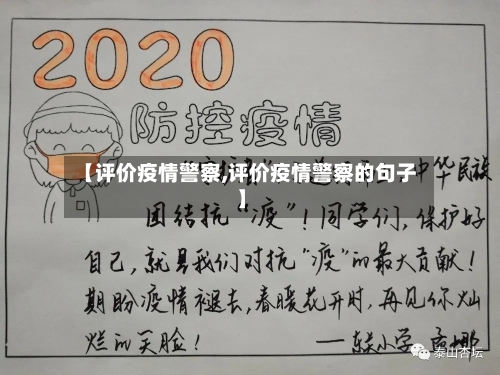 2020
防控疫情
【评价疫情警察,评价疫情警察的句子
】
中华民族
团结抗“疫”！同学们，保护好
自己，就是我们对抗“疫”的最大贡献！
期盼疫情褪去，春暖花开时，再见你灿
烂的笑脸！
——东关小学
泰山杏坛